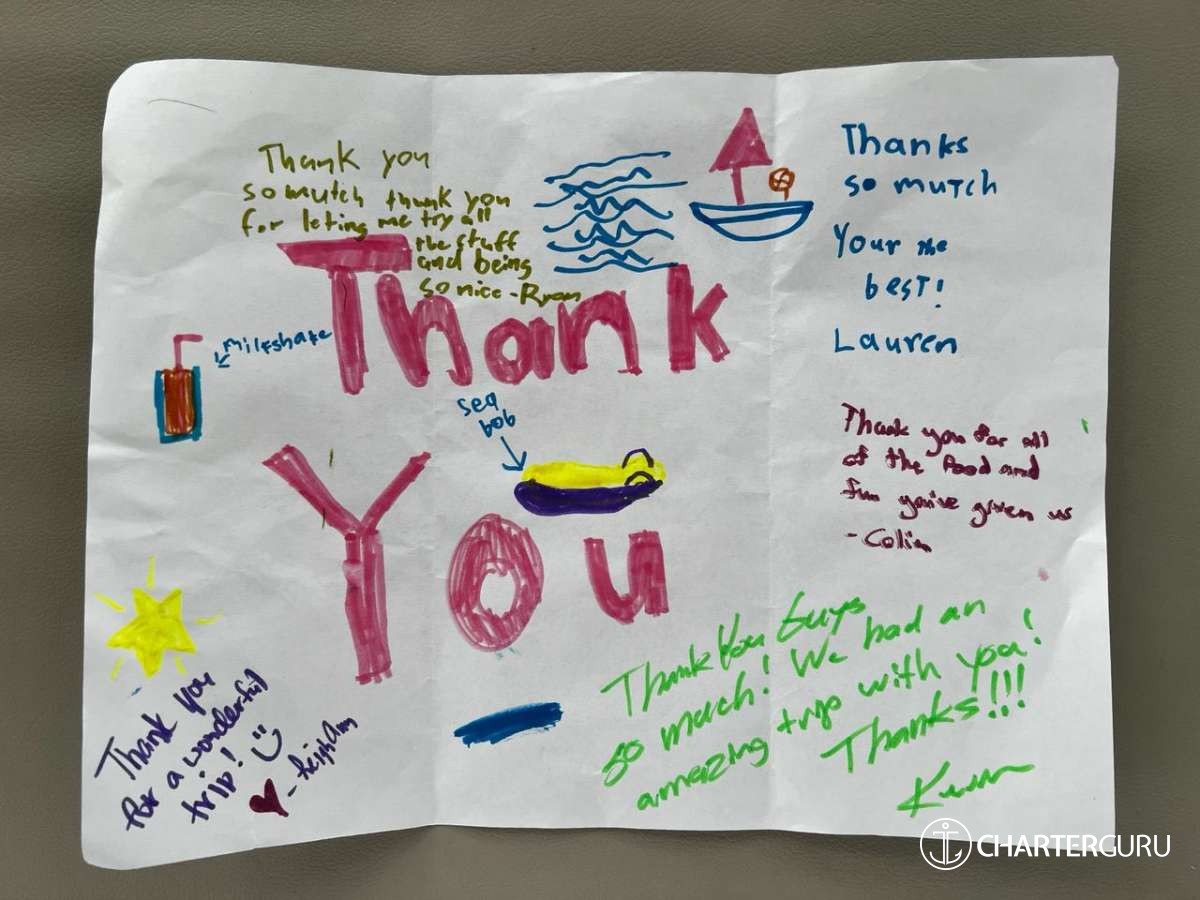 Thank you
so mutch thank you
for leting me try all
the stuff
and being
so nice -Ryan
Thanks
so mutch
Your the
best!
Lauren
Thank
milkshake
sea
bob
Thank you for all
of the food and
fun you've given us
-Colin
You
Thank you
for a wonderful
trip!
Thank You Guys
so much! We had an
amazing trip with you!
Thanks!!!
CHARTERGURU